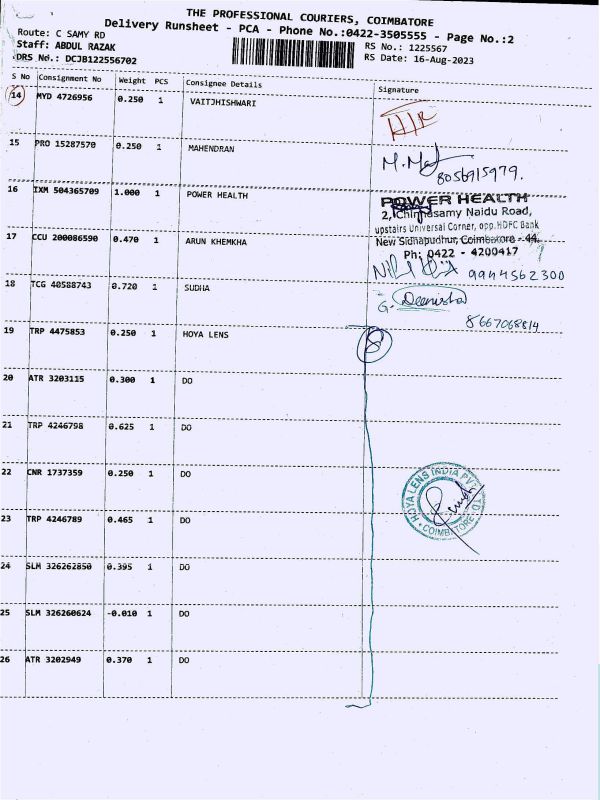 THE PROFESSIONAL COURIERS, COIMBATORE
Delivery Runsheet - PCA - Phone No.:0422-3505555 - Page No.:2
Route: C SAMY RD
RS No.: 1225567
Staff: ABDUL RAZAK
RS Date: 16-Aug-2023
DRS No.: DCJB122556702
S No Consignment No Weight PCS Consignee Details Signature
14 MYD 4726956 0.250 1 VAITJHISHWARI
15 PRO 15287570 0.250 1 MAHENDRAN
8056915979.
16 IXM 504365709 1.000 1 POWER HEALTH
POWER HEALTH
2, Chinnasamy Naidu Road,
upstairs Universal Corner, opp.HDFC Bank
New Sidhapudhur, Coimbatore - 44.
Ph: 0422 - 4200417
17 CCU 200086590 0.470 1 ARUN KHEMKHA
9944562300
18 TCG 40588743 0.720 1 SUDHA
8667068814
19 TRP 4475853 0.250 1 HOYA LENS
8
20 ATR 3203115 0.300 1 DO
21 TRP 4246798 0.625 1 DO
22 CNR 1737359 0.250 1 DO
HOYA LENS INDIA PVT LTD
COIMBATORE
23 TRP 4246789 0.465 1 DO
24 SLM 326262850 0.395 1 DO
25 SLM 326260624 -0.010 1 DO
26 ATR 3202949 0.370 1 DO